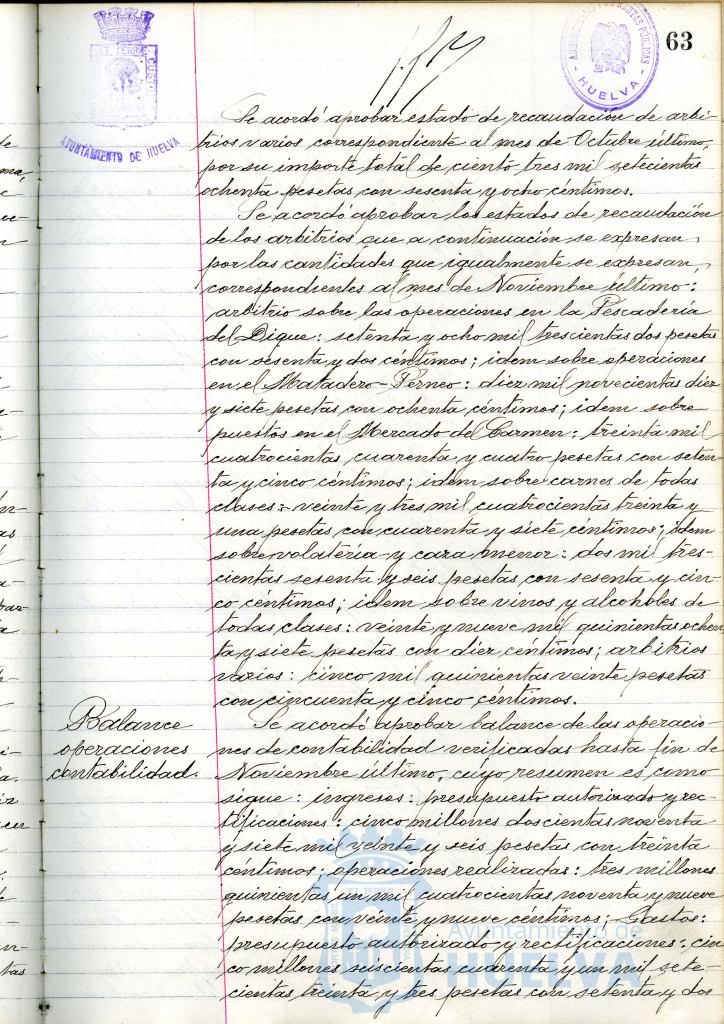 63
PORTUS MARIS
ET TERRAE CUSTO
AYUNTAMIENTO DE HUELVA
HUELVA
Se acordó aprobar estado de recaudación de arbi-
trios varios correspondiente al mes de Octubre último,
por su importe total de ciento tres mil setecientas
ochenta pesetas con sesenta y ocho céntimos.
Se acordó aprobar los estados de recaudación
de los arbitrios que a continuación se expresan,
por las cantidades que igualmente se expresan,
correspondientes al mes de Noviembre último:
arbitrio sobre las operaciones en la Pescadería
del Dique: setenta y ocho mil trescientas dos pesetas
con sesenta y dos céntimos; idem sobre operaciones
en el Matadero-Perneo: diez mil novecientas diez
y siete pesetas con ochenta céntimos; idem sobre
puestos en el Mercado del Carmen: treinta mil
cuatrocientas cuarenta y cuatro pesetas con seten-
ta y cinco céntimos; idem sobre carnes de todas
clases: veinte y tres mil cuatrocientas treinta y
una pesetas con cuarenta y siete céntimos; idem
sobre volatería y caza menor: dos mil tres-
cientas sesenta y seis pesetas con sesenta y cin-
co céntimos; idem sobre vinos y alcoholes de
todas clases: veinte y nueve mil quinientas ochen
ta y siete pesetas con diez céntimos; arbitrios
varios: cinco mil quinientas veinte pesetas
con cincuenta y cinco céntimos.
Balance
operaciones
contabilidad.
Se acordó aprobar balance de las operacio-
nes de contabilidad verificadas hasta fin de
Noviembre último, cuyo resumen es como
sigue: ingresos: presupuesto autorizado y rec-
tificaciones: cinco millones doscientas noventa
y siete mil veinte y seis pesetas con treinta
céntimos; operaciones realizadas: tres millones
quinientas un mil cuatrocientas noventa y nueve
pesetas con veinte y nueve céntimos; Gastos:
presupuesto autorizado y rectificaciones: cin
co millones seiscientas cuarenta y un mil sete-
cientas treinta y tres pesetas con setenta y dos
Ayuntamiento de
HUELVA